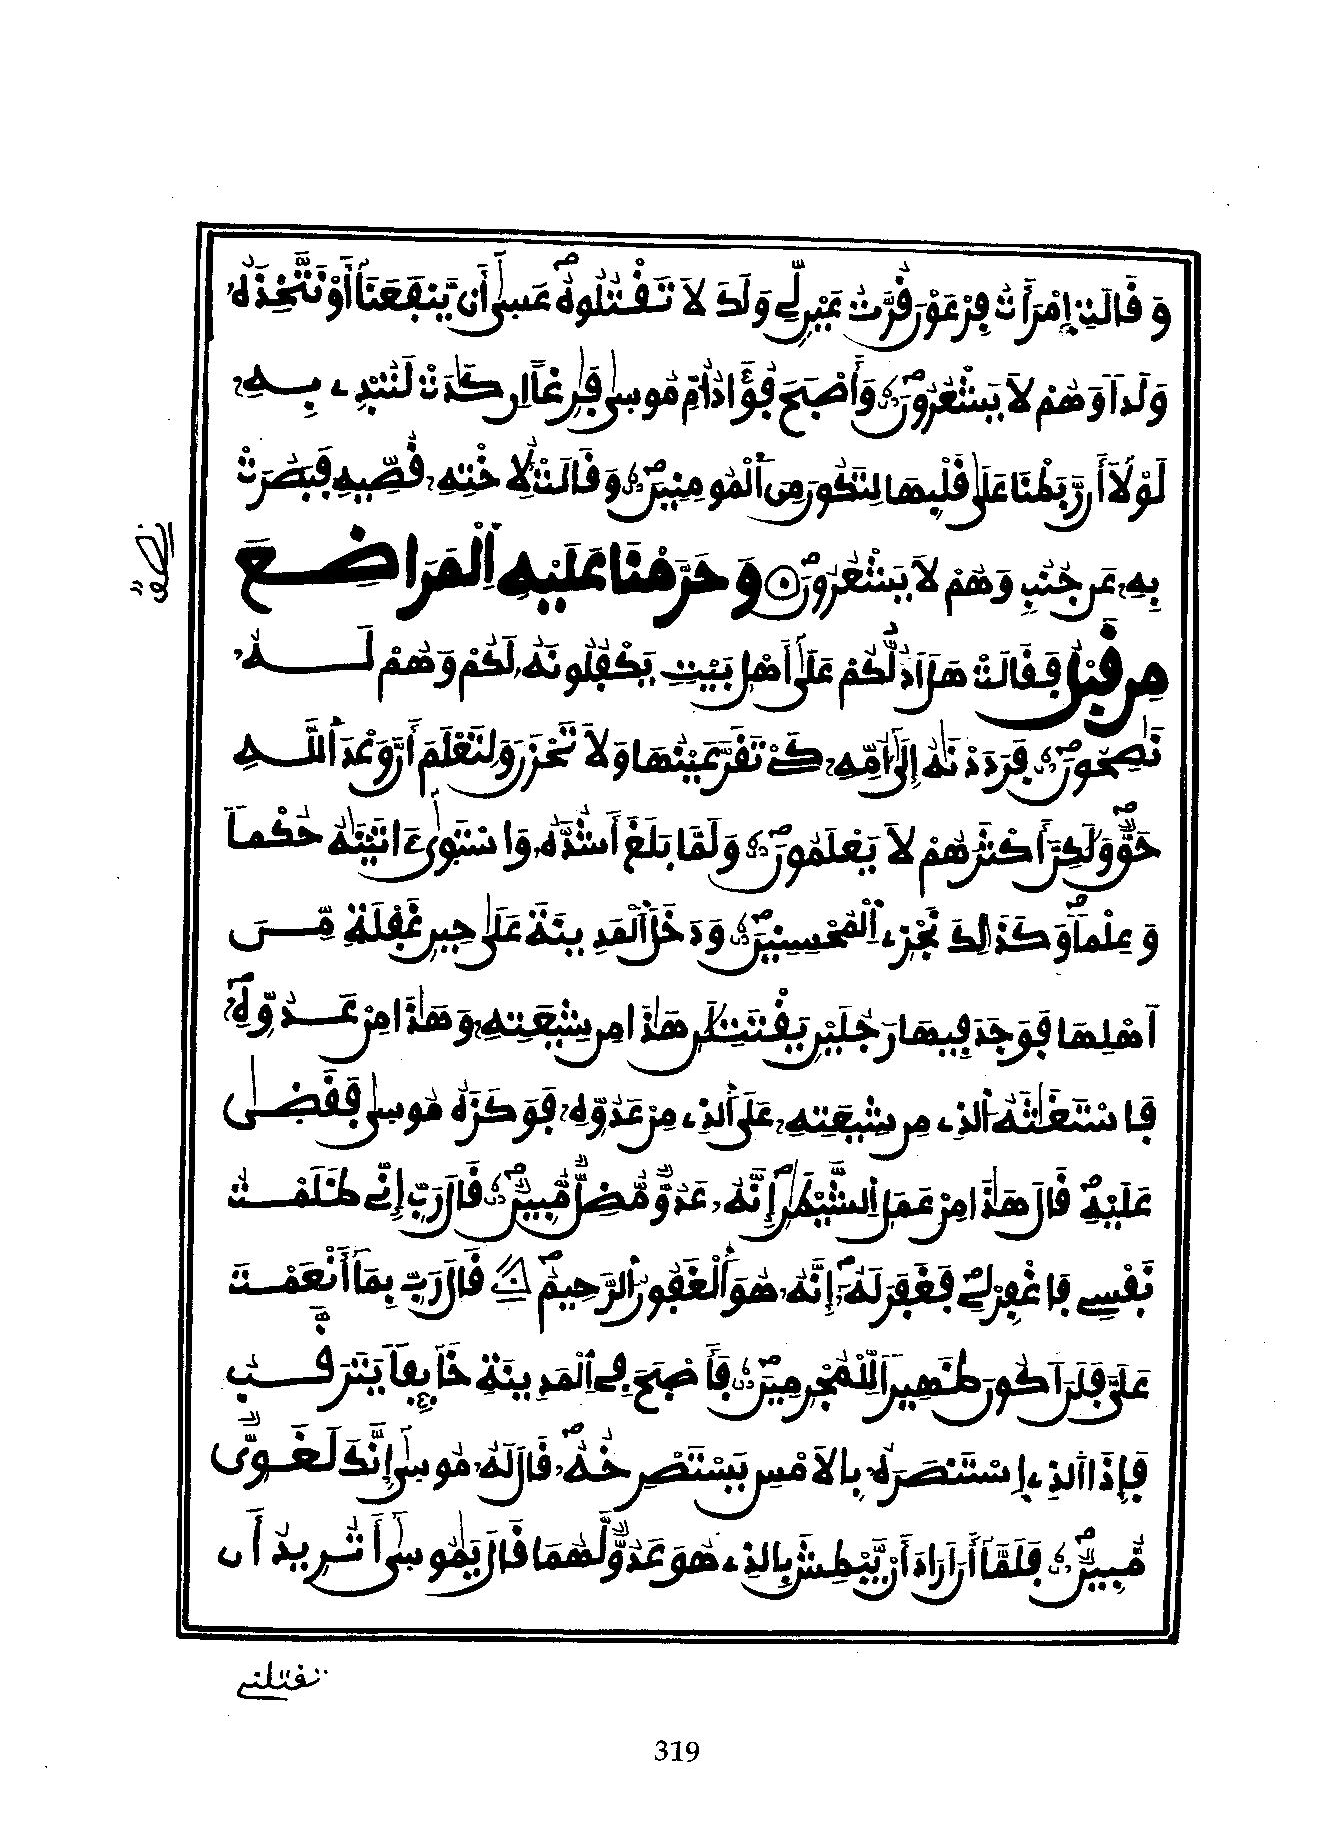 وَقَالَتِ إِمْرَأَتُ فِرْعَوْنَ قُرَّتُ عَيْنٍ لِّي وَلَكَ لَا تَقْتُلُوهُ عَسَىٰ أَنْ يَّنفَعَنَا أَوْ نَتَّخِذَهُ
وَلَدًا وَهُمْ لَا يَشْعُرُونَ وَأَصْبَحَ فُؤَادُ أُمِّ مُوسَىٰ فَٰرِغًا اِن كَادَتْ لَتُبْدِے بِهِ
لَوْلَا أَن رَّبَطْنَا عَلَىٰ قَلْبِهَا لِتَكُونَ مِنَ اَلْمُومِنِينَ وَقَالَتْ لِأُخْتِهِ قُصِّيهِ فَبَصُرَتْ
بِهِ عَن جُنُبٍ وَهُمْ لَا يَشْعُرُونَ وَحَرَّمْنَا عَلَيْهِ اِلْمَرَاضِعَ
مِن قَبْلُ فَقَالَتْ هَلَ اَدُلُّكُمْ عَلَىٰ أَهْلِ بَيْتٍ يَكْفُلُونَهُ لَكُمْ وَهُمْ لَهُ
نَٰصِحُونَ فَرَدَدْنَٰهُ إِلَىٰ أُمِّهِ كَےْ تَقَرَّ عَيْنُهَا وَلَا تَحْزَنَ وَلِتَعْلَمَ أَنَّ وَعْدَ اَللَّهِ
حَقٌّ وَلَٰكِنَّ أَكْثَرَهُمْ لَا يَعْلَمُونَ وَلَمَّا بَلَغَ أَشُدَّهُ وَاسْتَوَىٰ ءَاتَيْنَٰهُ حُكْمًا
وَعِلْمًا وَكَذَٰلِكَ نَجْزِے اِلْمُحْسِنِينَ وَدَخَلَ اَلْمَدِينَةَ عَلَىٰ حِينِ غَفْلَةٍ مِّنَ
اَهْلِهَا فَوَجَدَ فِيهَا رَجُلَيْنِ يَقْتَتِلَٰنِ هَٰذَا مِن شِيعَتِهِ وَهَٰذَا مِنْ عَدُوِّهِ
فَاسْتَغَٰثَهُ اَلذِے مِن شِيعَتِهِ عَلَى اَلذِے مِنْ عَدُوِّهِ فَوَكَزَهُ مُوسَىٰ فَقَضَىٰ
عَلَيْهِ قَالَ هَٰذَا مِنْ عَمَلِ اِلشَّيْطَٰنِ إِنَّهُ عَدُوٌّ مُّضِلٌّ مُّبِينٌ قَالَ رَبِّ إِنِّے ظَلَمْتُ
نَفْسِے فَاغْفِرْ لِے فَغَفَرَ لَهُ إِنَّهُ هُوَ اَلْغَفُورُ اُلرَّحِيمُ قَالَ رَبِّ بِمَا أَنْعَمْتَ
عَلَىَّ فَلَنَ اَكُونَ ظَهِيرًا لِّلْمُجْرِمِينَ فَأَصْبَحَ فِے اِلْمَدِينَةِ خَائِفًا يَتَرَقَّبُ
فَإِذَا اَلذِے اِسْتَنصَرَهُ بِالَامْسِ يَسْتَصْرِخُهُ قَالَ لَهُ مُوسَىٰ إِنَّكَ لَغَوِىٌّ
مُّبِينٌ فَلَمَّا أَنَ اَرَادَ أَنْ يَّبْطِشَ بِالذِے هُوَ عَدُوٌّ لَّهُمَا قَالَ يَٰمُوسَىٰ أَتُرِيدُ أَن
تقتلنے
نصف
319